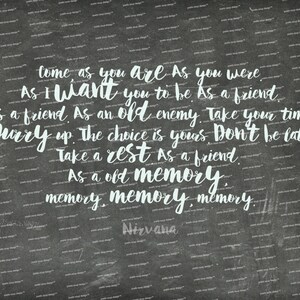 Come as you are As you were.
As I want you to be. As a friend.
s a friend. As an old enemy. Take your tim
urry up. The choice is yours. Don't be lat
Take a rest As a friend.
As a old memory,
memory, memory, memory.
Nirvana